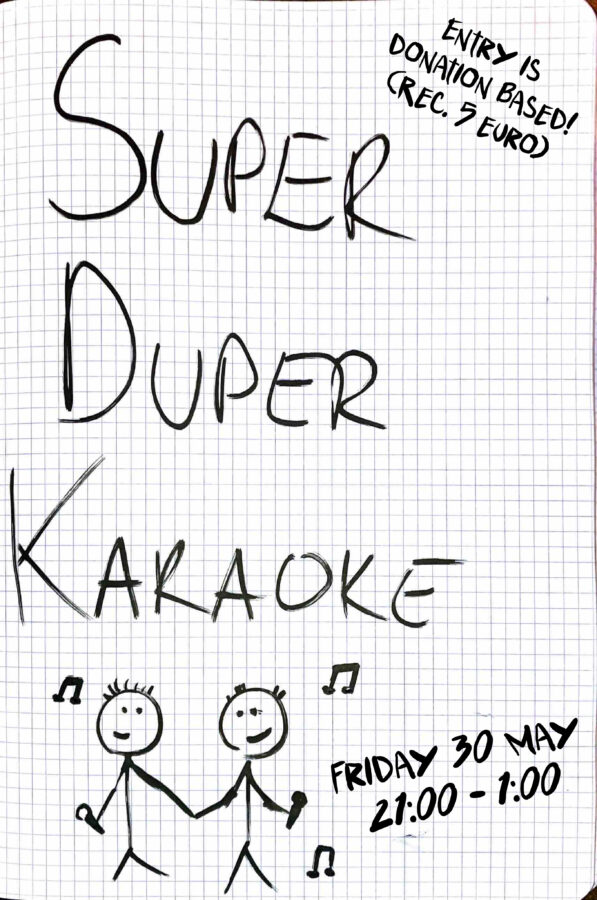 ENTRY IS
DONATION BASED!
(REC. 5 EURO)
SUPER
DUPER
KARAOKE
FRIDAY 30 MAY
21:00 - 1:00